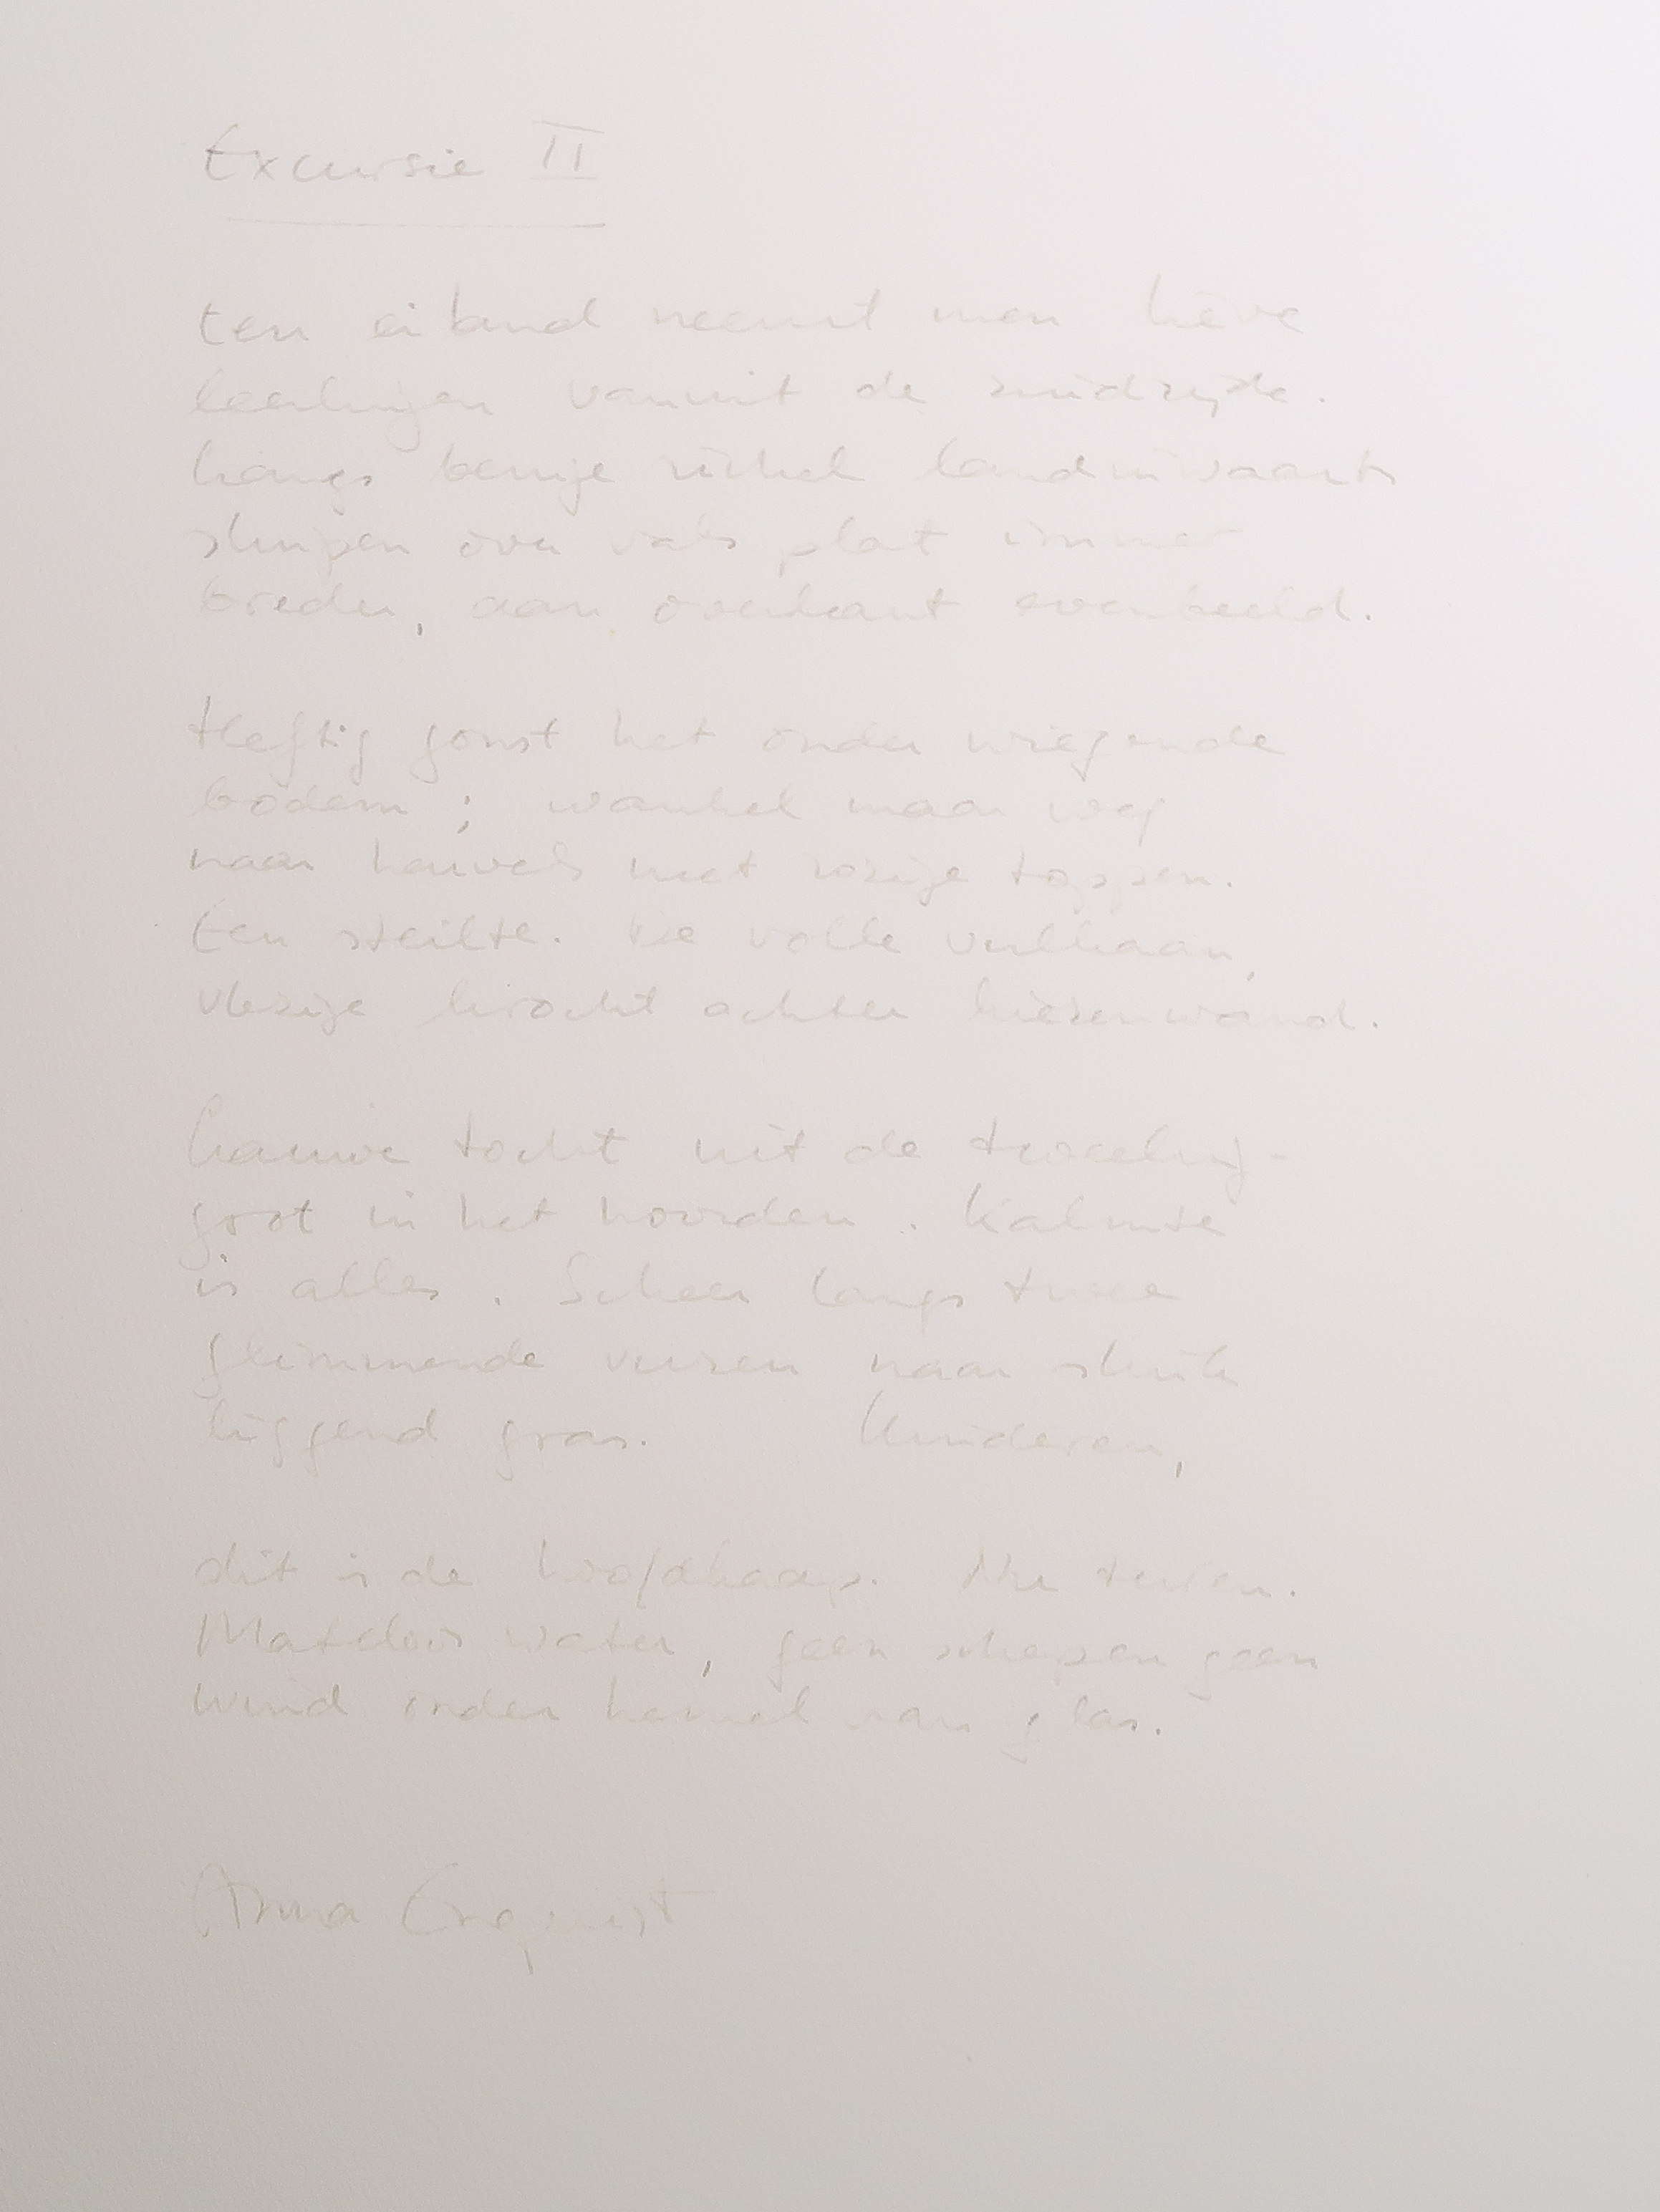 Excursie II
Een eiland neemt men lieve
leerlingen vanuit de zuidzijde.
Langs benige richel landinwaarts
sluipen over vals plat immer
breder, aan overkant evenbeeld.
Heftig gonst het onder wiegende
bodem; wankel maar weg
naar heuvels met rozige toppen.
Een steilte. De volle vulkaan,
vlezige krocht achter kiezenwand.
Lauwe tocht uit de tweeling-
grot in het noorden. Kalmte
is alles. Scheer langs twee
glimmende vijzen naar sluik
liggend gras. Kinderen,
dit is de hoofdkaap. Nu turen.
Mateloos water, geen schepen geen
wind onder hemel van glas.
Anna Enquist